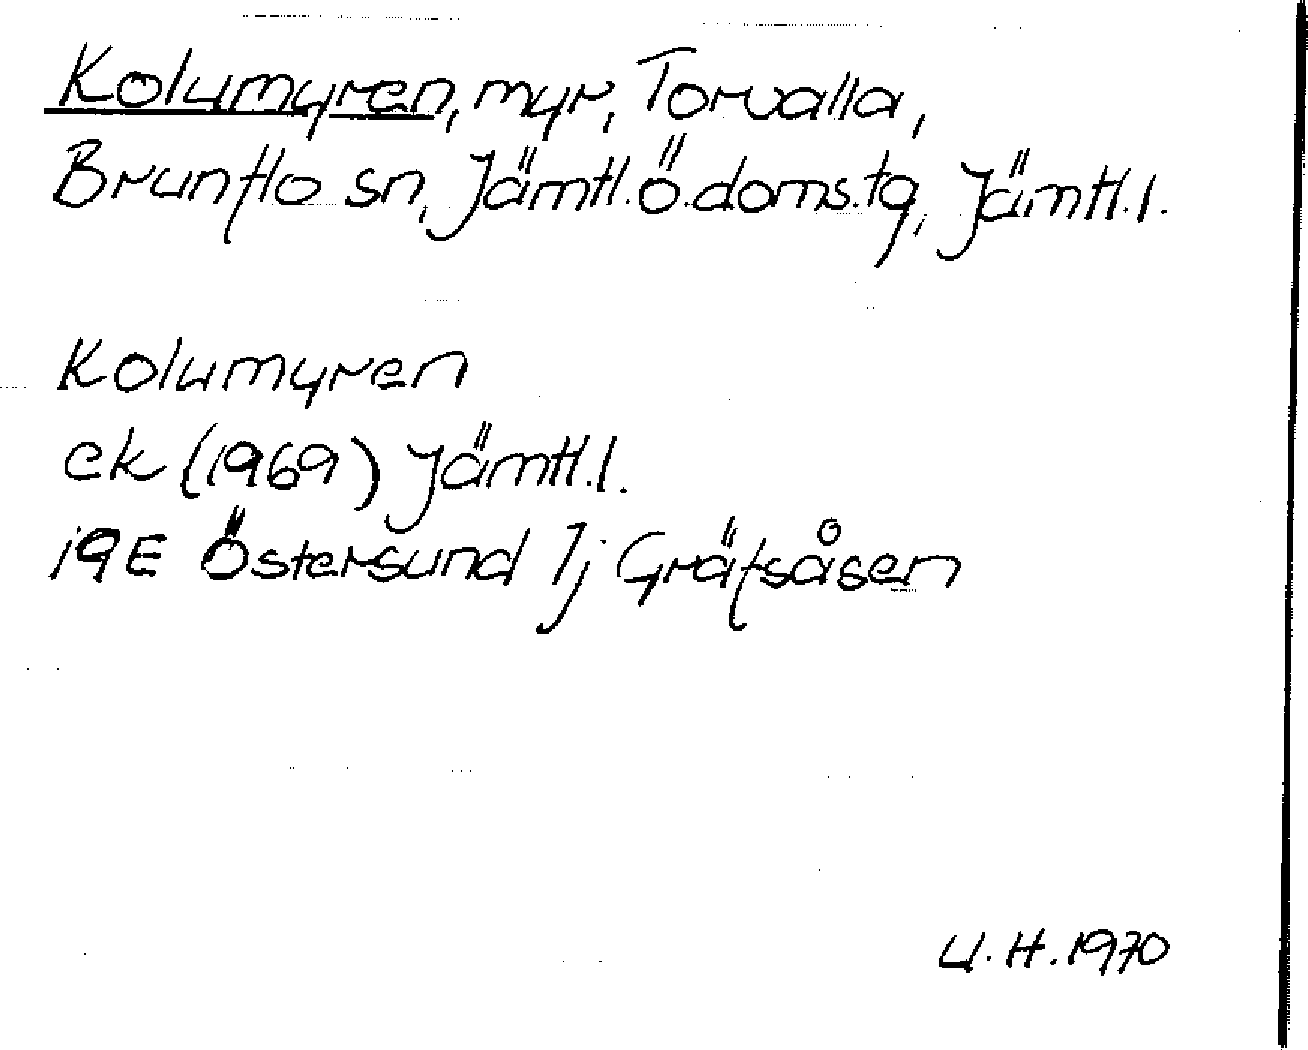 Kolumyren, myr, Torvalla,
Brunflo sn, Jämtl.ö.doms.tg, Jämtl.l.
Kolumyren
ek (1969) Jämtl.l.
19E Östersund 1j Gräfsåsen
U.H.1970